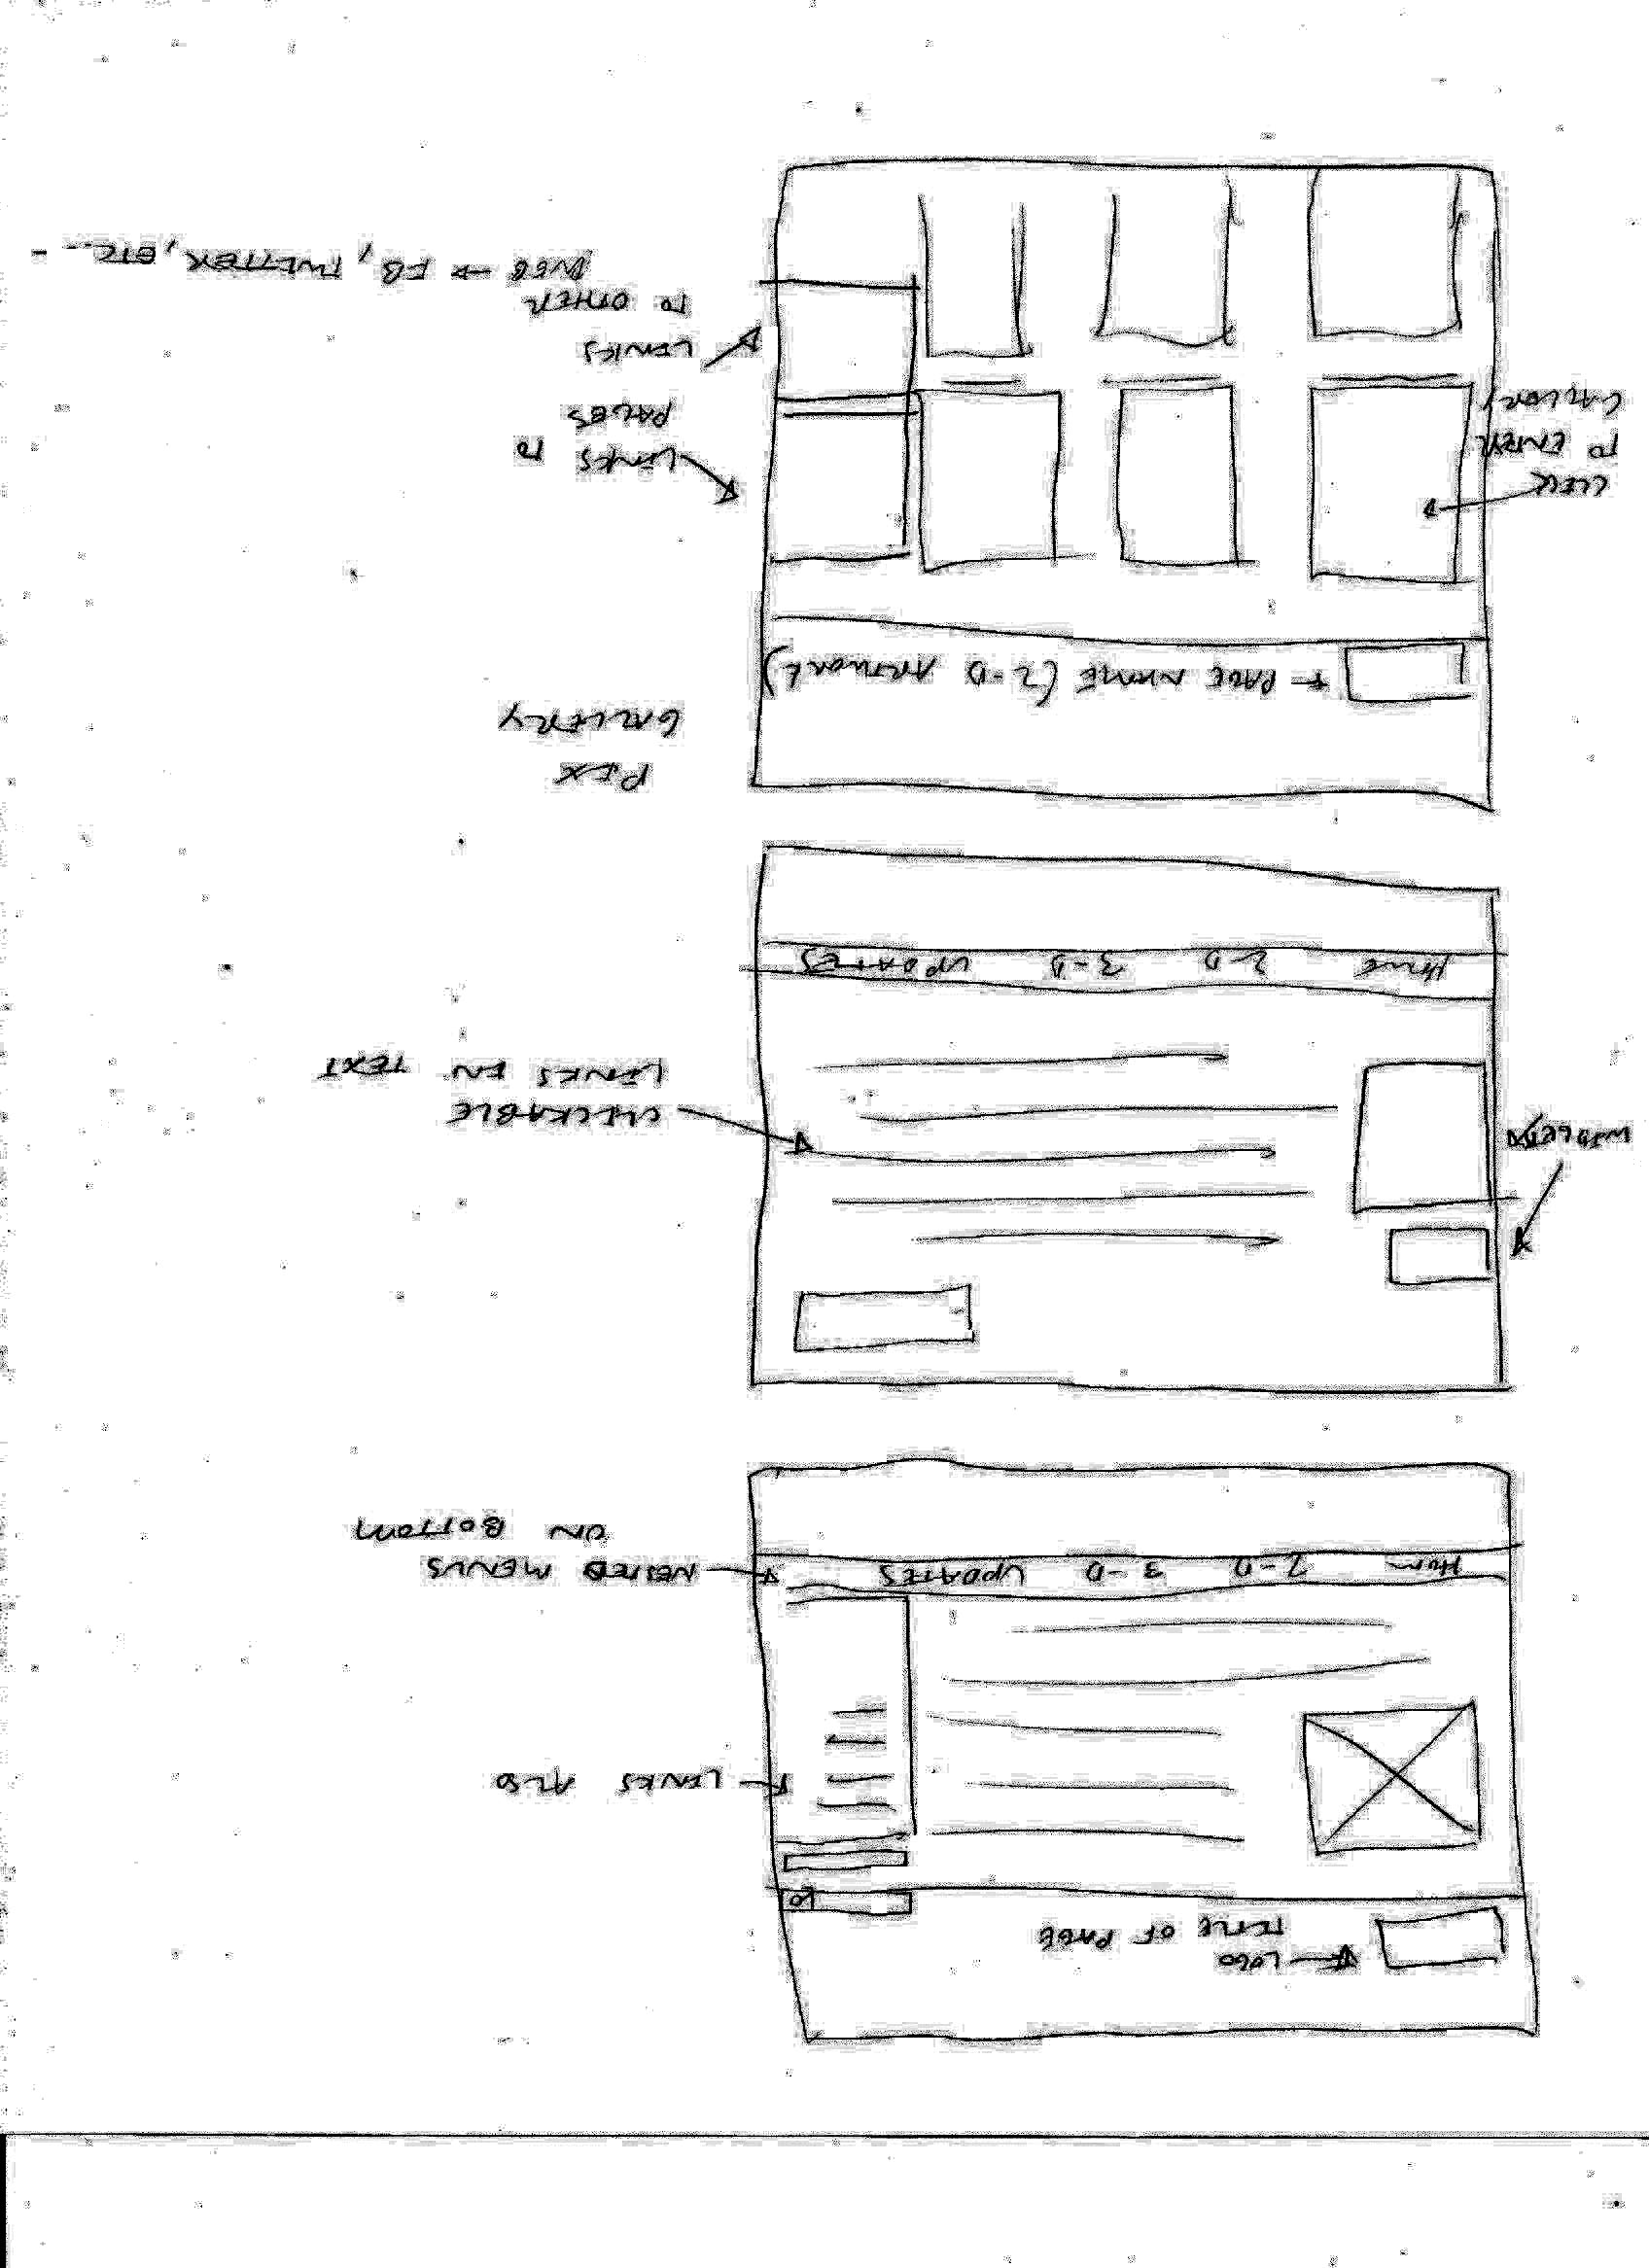 LOGO
TITLE OF PAGE
LINKS ALSO
HOME 2-D 3-D UPDATES
NESTED MENUS
ON BOTTOM
WIDGETS
CLICKABLE
LINKS IN TEXT
HOME 2-D 3-D UPDATES
PIX
GALLERY
PAGE NAME (2-D ARTWORK)
CLICK
TO ENTER
GALLORY
LINKS TO
PAGES
LINKS
TO OTHER
WEB → FB, TWITTER, ETC...